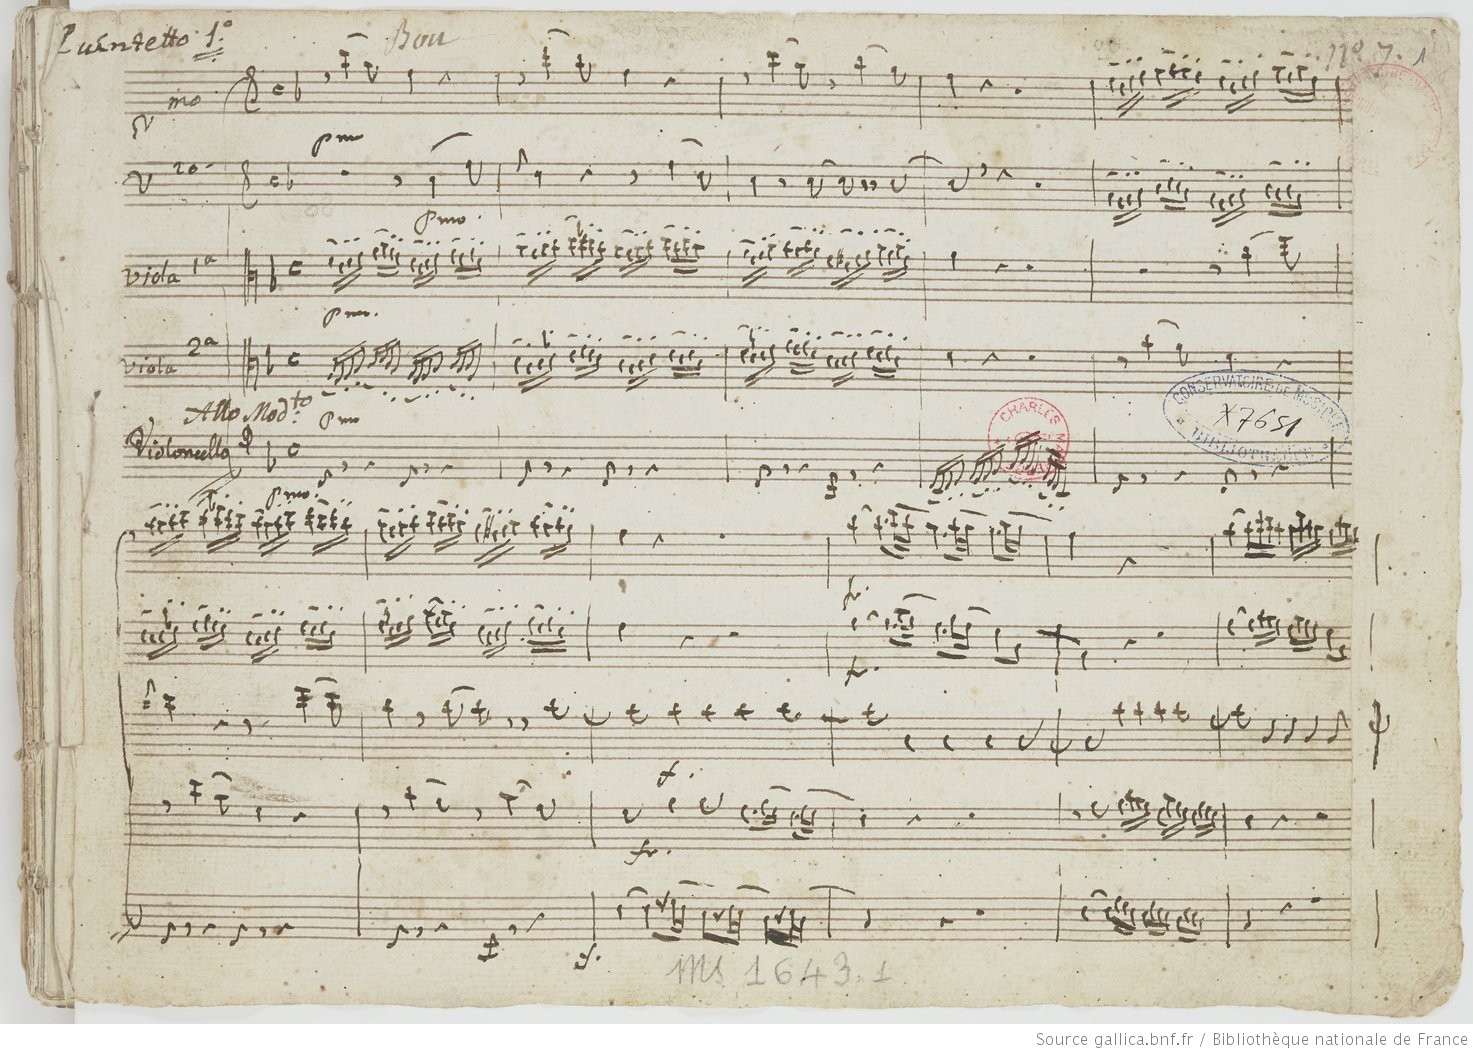 Quintetto 1.º
Bon
Nº 7. 1
mo
V
pmo
V 2do
pmo.
viola 1ª
pmo.
viola 2ª
Allo Modto
pmo
Violoncello
pmo.
CHARLES MA
CONSERVATOIRE DE MUSIQUE
X 7651
BIBLIOTHÈQUE
fr.
fr.
f.
fr.
f.
MS 1643.1
Source gallica.bnf.fr / Bibliothèque nationale de France